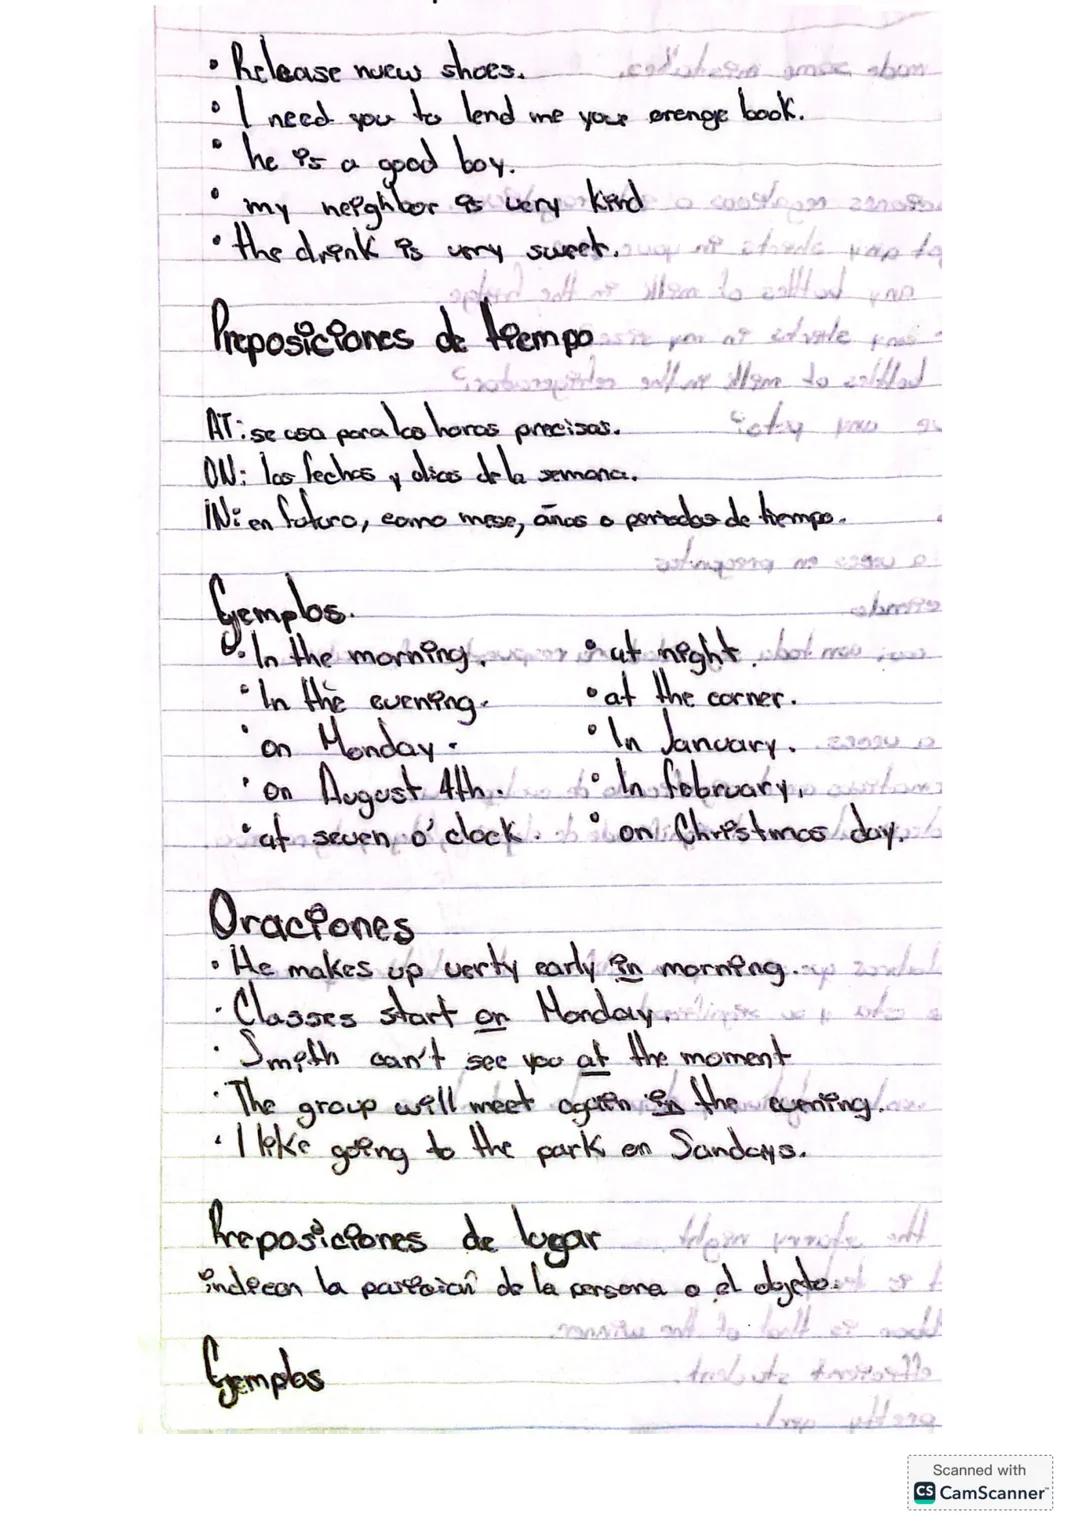 • Release nuew shoes.
• I need you to lend me your orenge book.
• he is a good boy.
• my neighbor is very kind
• the drink is very sweet.
Preposiciones de tiempo
AT: se usa para las horas precisas.
ON: las fechas y dias de la semana.
IN: en futuro, como mese, años o periodos de tiempo.
Ejemplos.
• In the morning.
• at night.
• In the evening.
• at the corner.
• on Monday.
• In January.
• on August 4th.
• In february.
• at seven o'clock.
• on Christmas day.
Oraciones
• He makes up verty early in morning.
• Classes start on Monday.
• Smith can't see you at the moment
• The group will meet again in the evening.
• I like going to the park on Sandays.
Preposiciones de lugar
indican la de la persona o el objeto.
Ejemplos
Scanned with
CS CamScanner